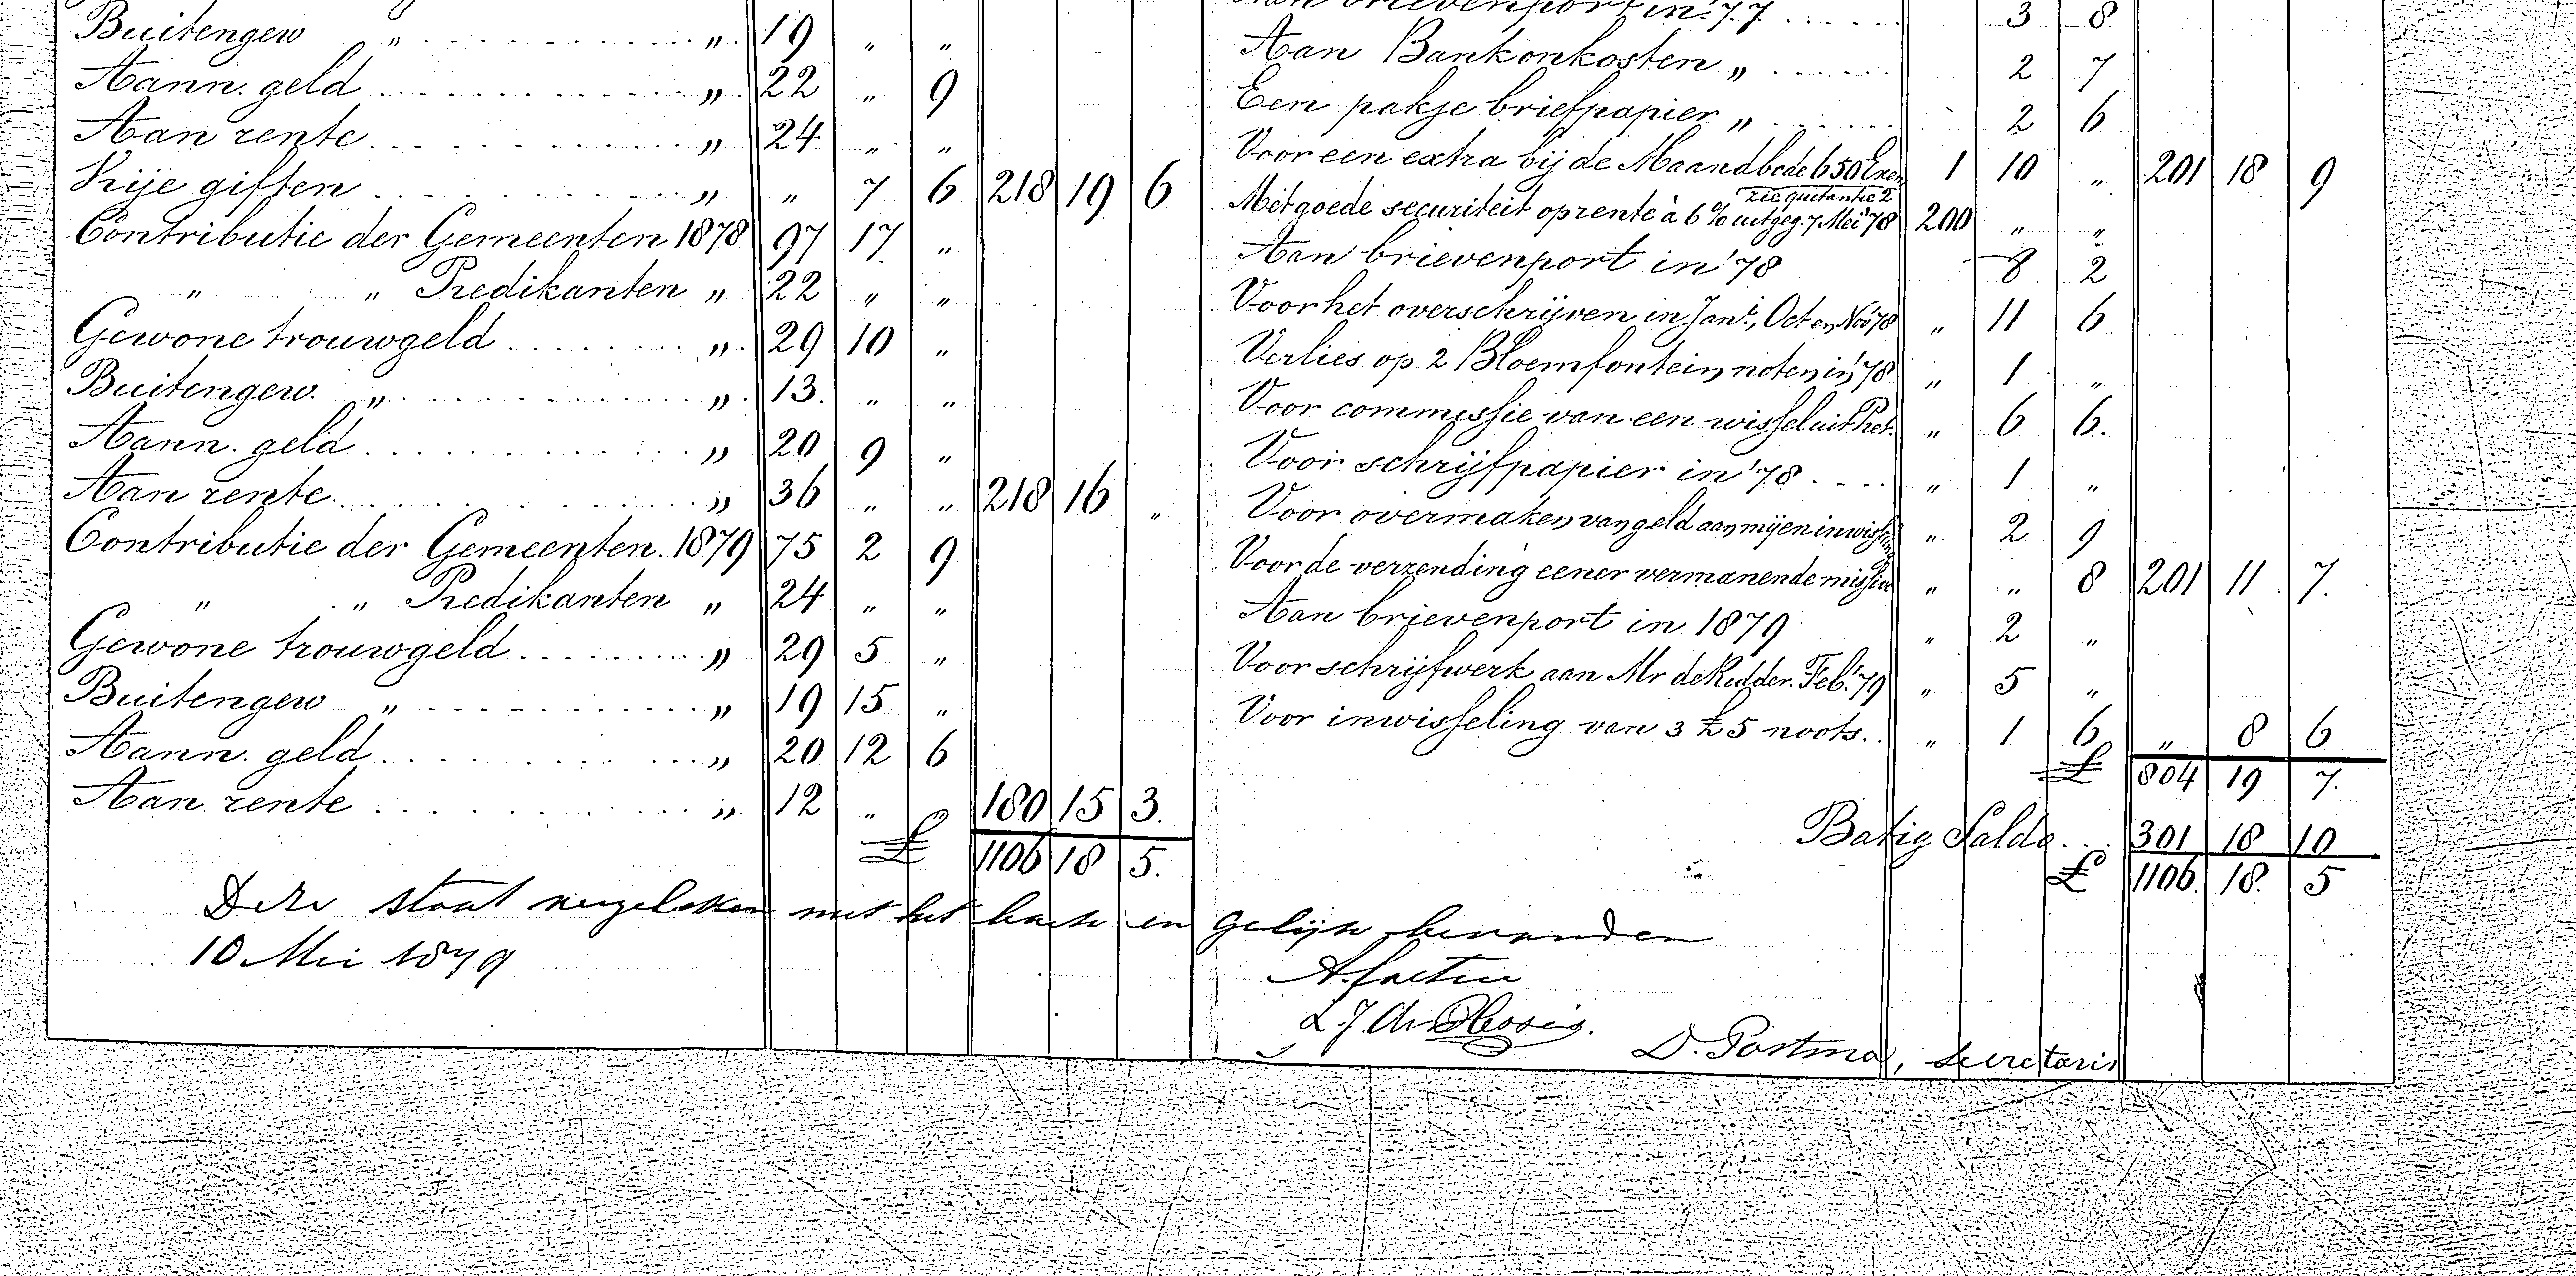 Buitengew " " 19 " "
Aann. geld " 22 " 9
Aan rente " 24 " "
Vrije giften " " 7 6 218 19 6
Contributie der Gemeenten 1878 97 17 "
" " Predikanten " 22 " "
Gewone trouwgeld " 29 10 "
Buitengew. " " 13. " "
Aann. geld " 20 9 "
Aan rente " 36 " " 218 16 "
Contributie der Gemeenten. 1879 75 2 9
" " Predikanten " 24 " "
Gewone trouwgeld " 29 5 "
Buitengew " " 19 15 "
Aann. geld " 20 12 6
Aan rente " 12 " " 180 15 3.
£ 1106 18 5.
Aan brievenport in '77 3 8
Aan Bankonkosten " 2 7
Een pakje briefpapier " 2 6
Voor een extra bij de Maandbode 650 Exem 1 10 " 201 18 9
zie quitantie 2
Met goede securiteit op rente à 6 % uitgeg. 7 Mei '78 200 " "
Aan brievenport in '78 8 2
Voor het overschrijven in Jan., Oct en Nov '78 " 11 6
Verlies op 2 Bloemfontein noten in '78 " 1 "
Voor commissie van een wissel uit Pret. " 6 6.
Voor schrijfpapier in '78 " 1 "
Voor overmaken van geld aan mij en inwisseling " 2 9
Voor de verzending eener vermanende missive " " 8 201 11 7.
Aan brievenport in 1879 " 2 "
Voor schrijfwerk aan Mr de Ridder. Feb. '79 " 5 "
Voor inwisseling van 3 £ 5 noots. " 1 6 " 8 6
£ 804 19 7.
Batig Saldo 301 18 10
£ 1106. 18. 5
Deze staat vergeleken met het boek en gelijk bevonden
10 Mei 1879
L. J. du Plessis.
D. Postma, secretaris